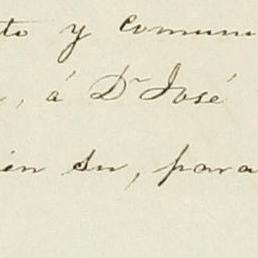 to y comuni
, á Dr José
ién su, para